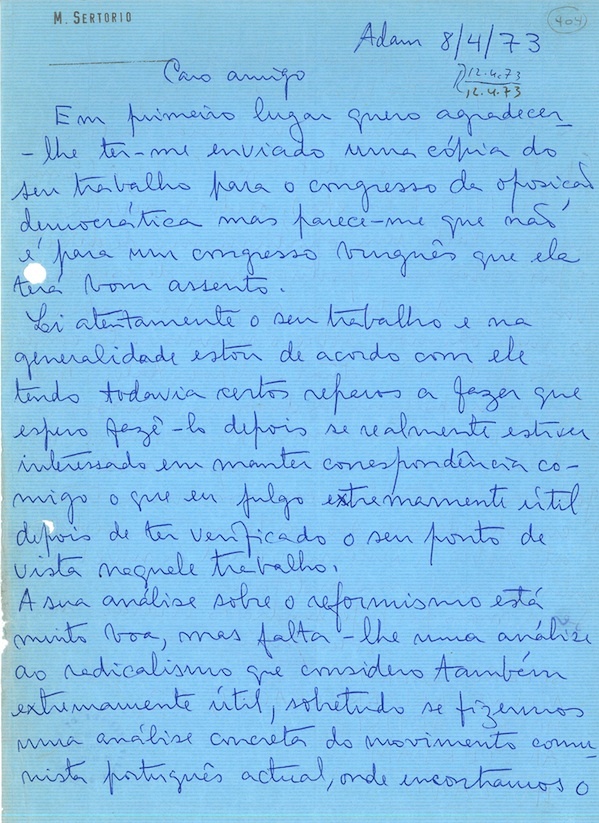 M. SERTORIO
404
Adam 8/4/73
R 12.4.73
12.4.73
Caro amigo
Em primeiro lugar quero agradecer-
-lhe ter-me enviado uma cópia do
seu trabalho para o congresso da oposição
democrática mas parece-me que não
é para um congresso burguês que ela
terá bom assento.
Li atentamente o seu trabalho e na
generalidade estou de acordo com ele
tendo todavia certos reparos a fazer que
espero fazê-lo depois se realmente estiver
interessado em manter correspondência co-
migo o que eu julgo extremamente útil
depois de ter verificado o seu ponto de
vista naquele trabalho.
A sua análise sobre o reformismo está
muito boa, mas falta-lhe uma análise
ao radicalismo que considero também
extremamente útil, sobretudo se fizermos
uma análise concreta do movimento comu-
nista português actual, onde encontramos o